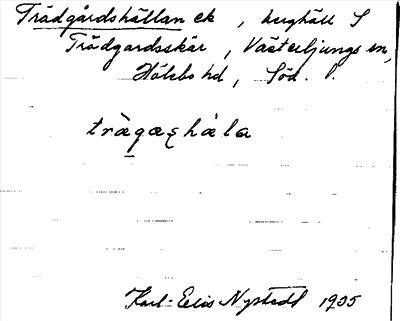 Trädgårdshällan ek, berghäll S
Trädgardsskär, Västerljungs sn,
Hölebo hd, Söd. l.
trägạȩhála
Karl-Eric Nystedt 1935